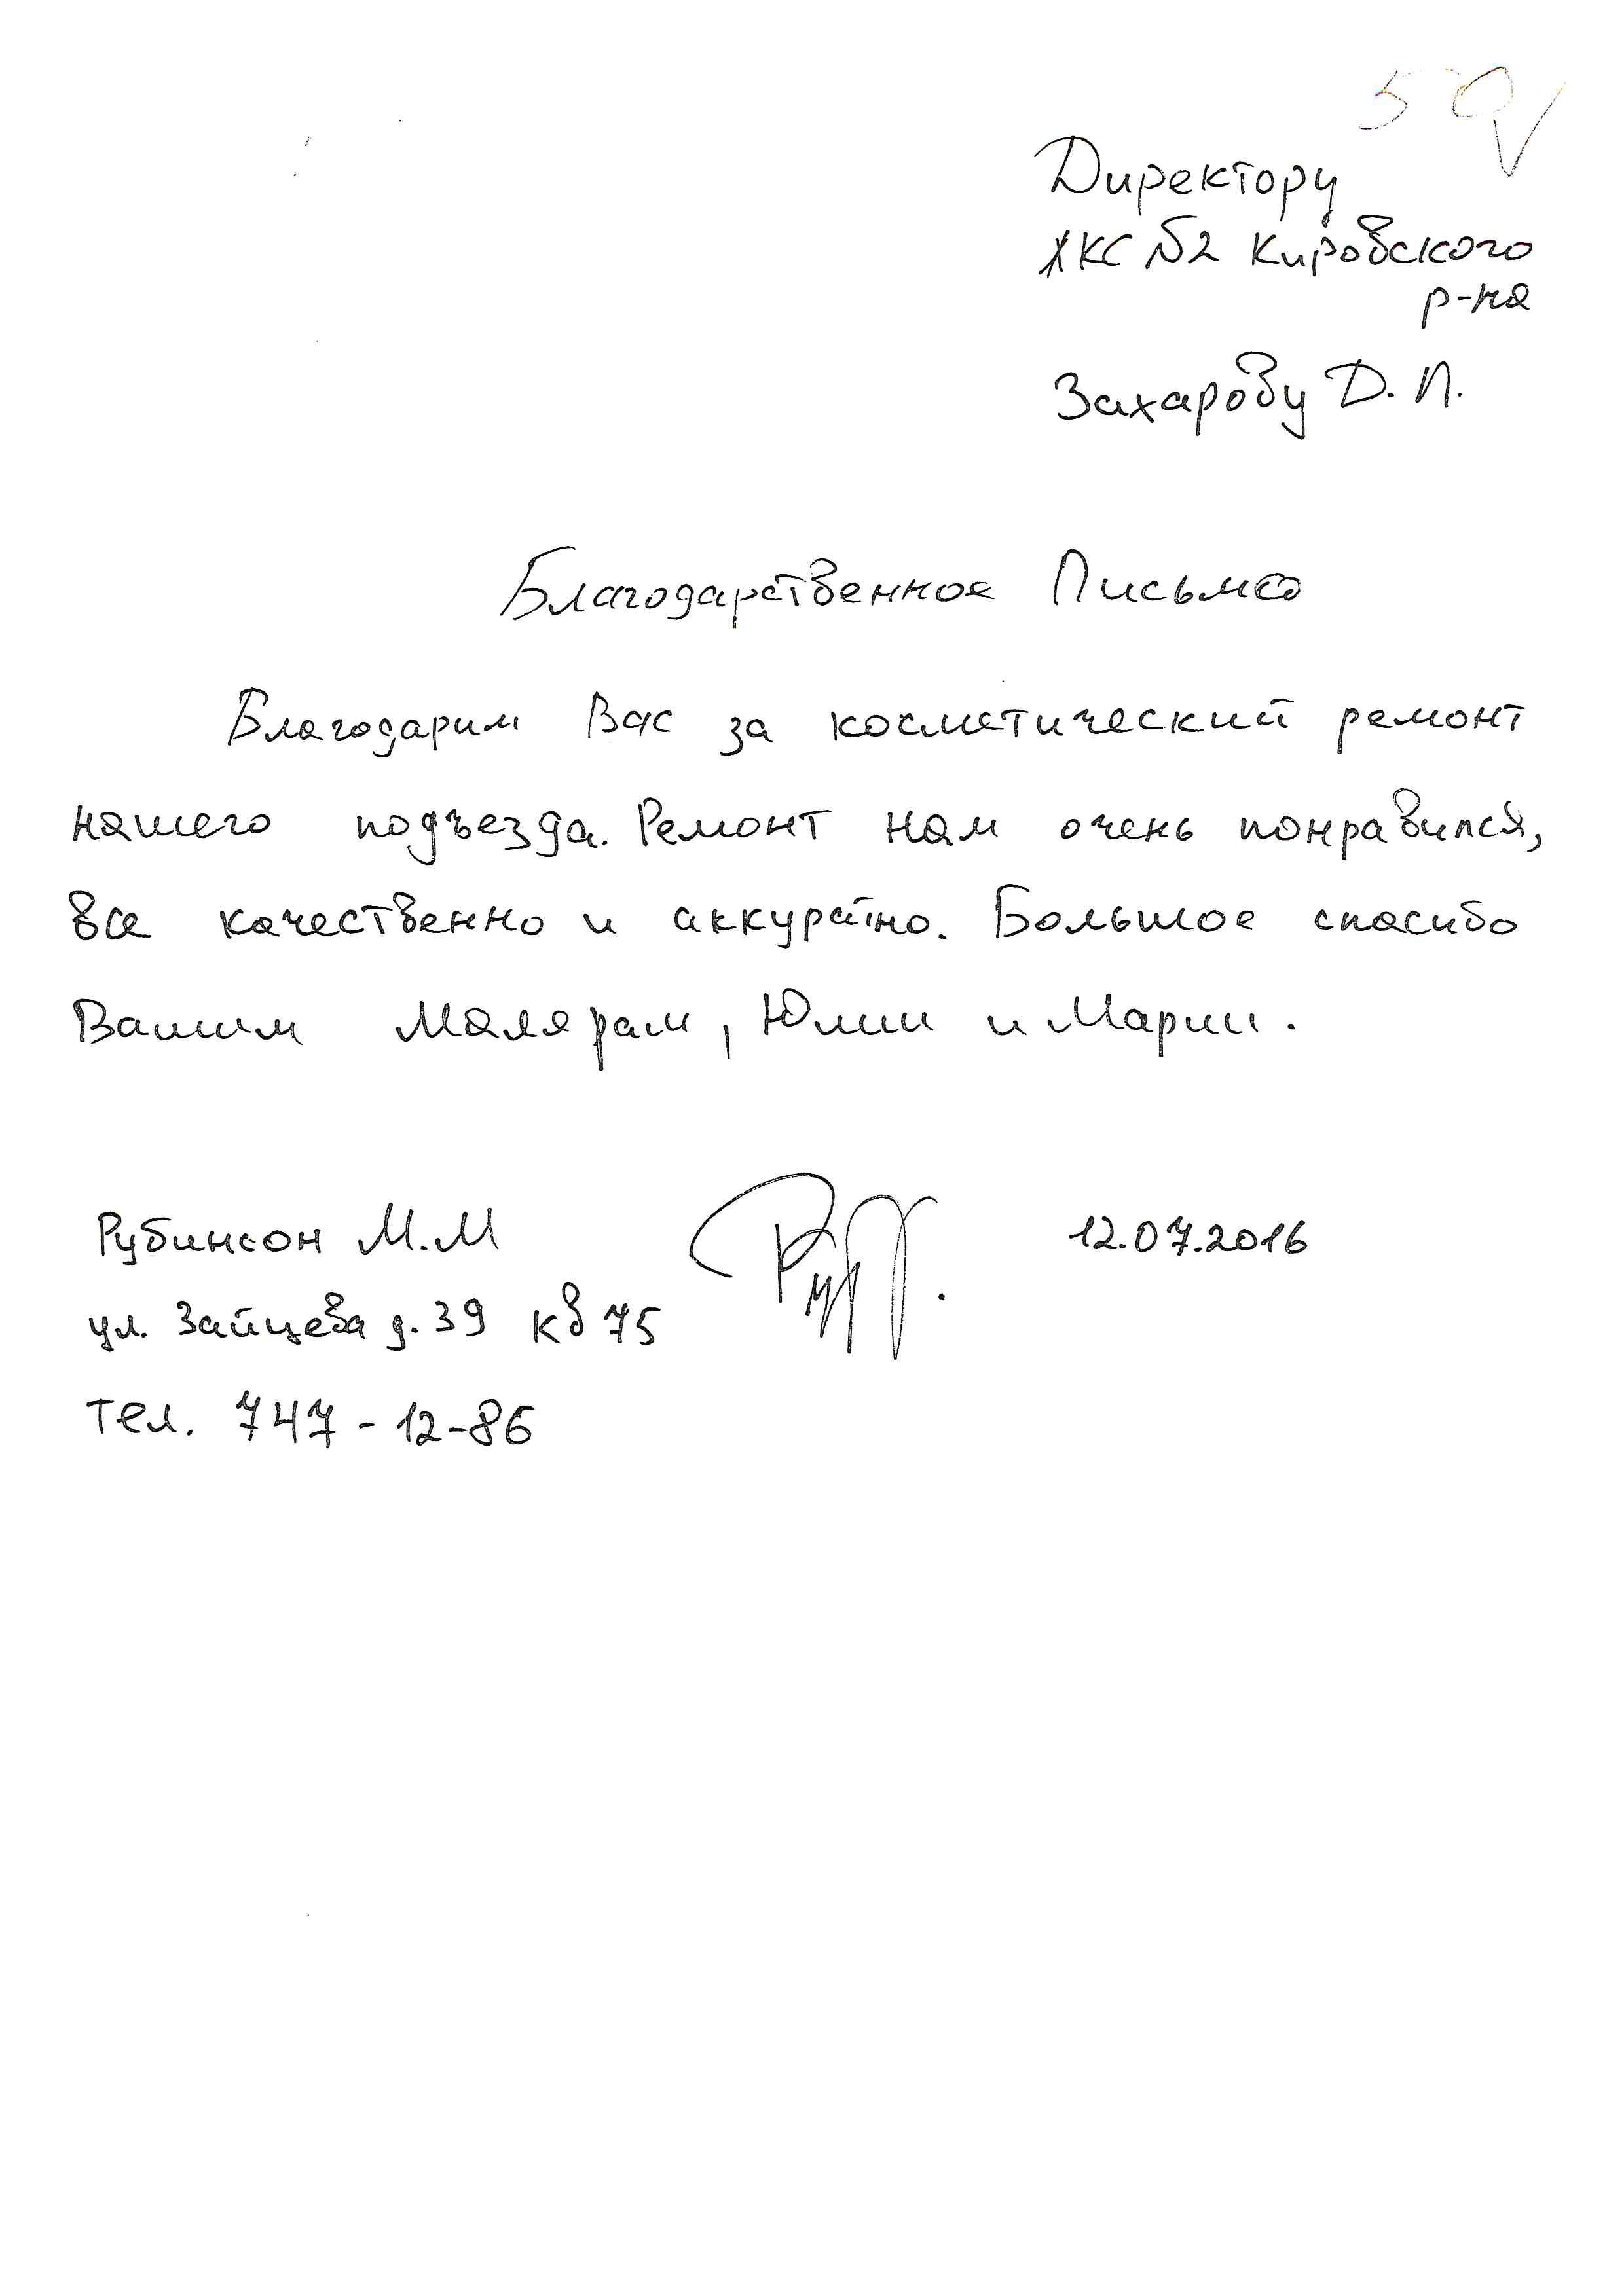 50
Директору
ЖКС №2 Кировского
р-на
Захарову Д. П.
Благодарственное Письмо
Благодарим Вас за косметический ремонт
нашего подъезда. Ремонт нам очень понравился,
все качественно и аккуратно. Большое спасибо
Вашим Малярам, Юлии и Марии.
Рубинсон М.М
12.07.2016
ул. Зайцева д. 39 кв 75
тел. 747-12-86